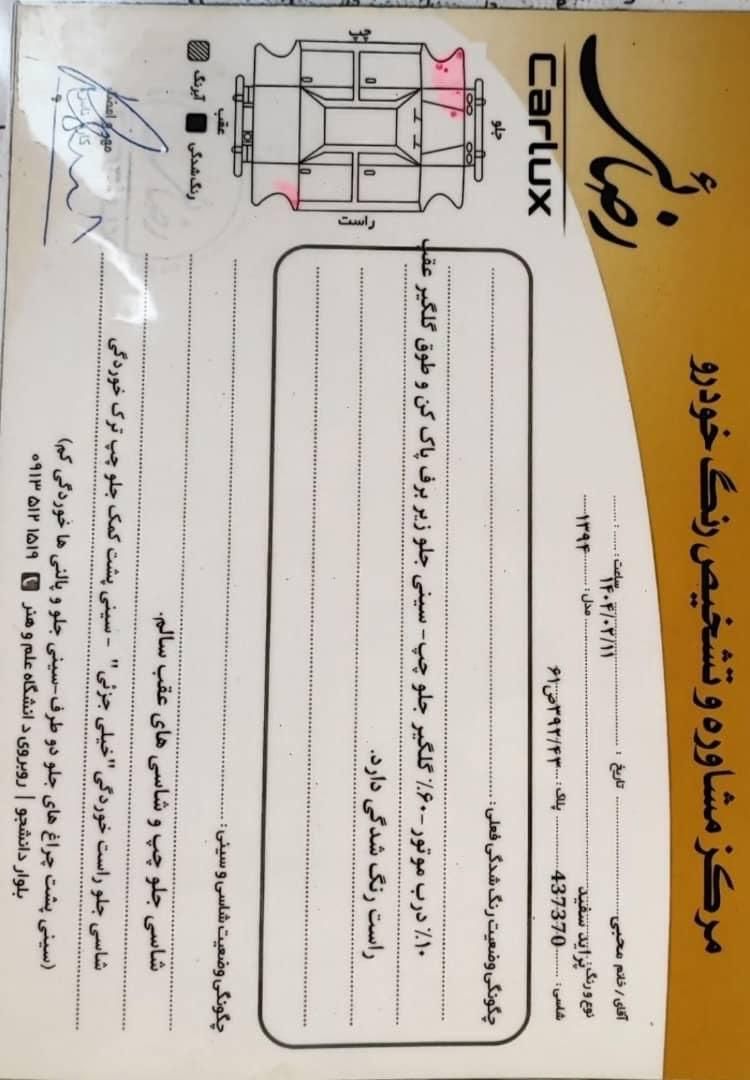 مرکز مشاوره و تشخیص رنگ خودرو
رضائی
Carlux
آقای / خانم محبی تاریخ : ۱۴۰۴/۰۲/۱۱ ساعت :
نوع و رنگ: پراید سفید مدل : ۱۳۹۴
شاسی : 437370 پلاک : ۳۹۲/۴۳ص۶۱
جلو
عقب
راست
چپ
آبرنگ
رنگ‌شدگی
چگونگی وضعیت رنگ شدگی فعلی :
۱۰٪ درب موتور-۶۰٪ گلگیر جلو چپ-سینی جلو زیر برف پاک کن و طوق گلگیر عقب
راست رنگ شدگی دارد.
چگونگی وضعیت شاسی و سینی :
شاسی جلو چپ و شاسی های عقب سالم.
شاسی جلو راست خوردگی "خیلی جزئی" -سینی پشت کمک جلو چپ ترک خوردگی
(سینی پشت چراغ های جلو دو طرف-سینی جلو و پالنی ها خوردگی کم)
مهر و امضاء
بلوار دانشجو | روبروی دانشگاه علم و هنر ۰۹۱۳ ۵۱۲ ۱۵۱۹